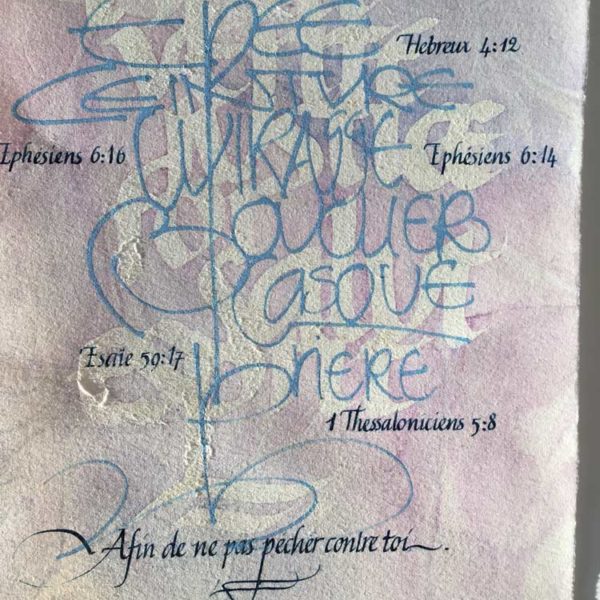 EPEE
Hebreux 4:12
CEINTURE
CUIRASSE
Ephésiens 6:16 Ephésiens 6:14
BOUCLIER
CASQUE
Esaïe 59:17
PRIERE
1 Thessaloniciens 5:8
Afin de ne pas pecher contre toi.